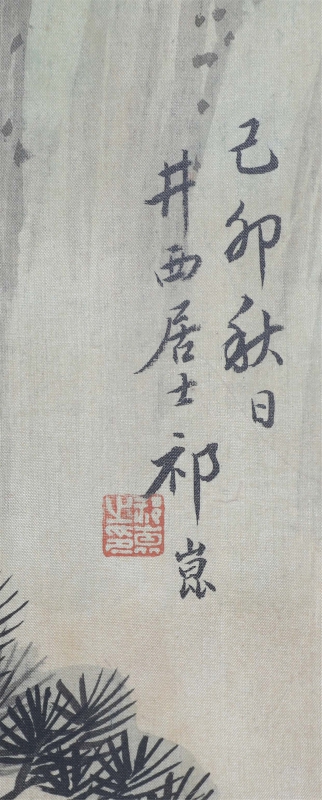 己卯秋日
井西居士祁崑